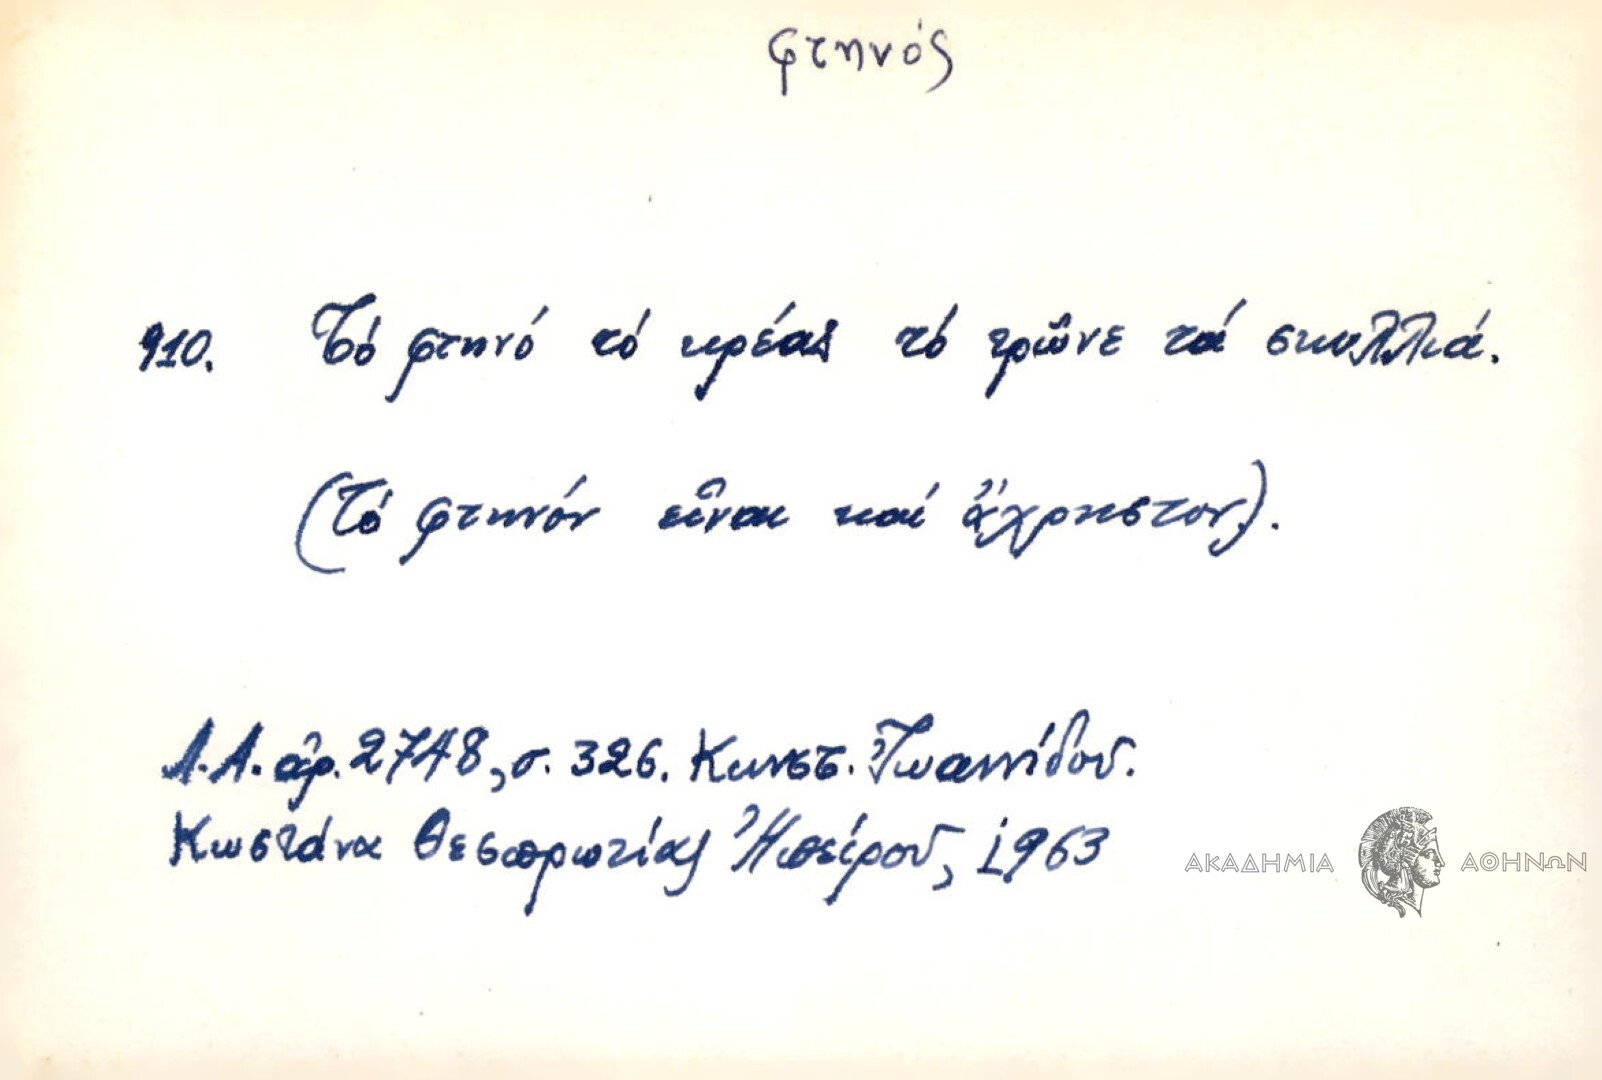 φτηνός
910. Τό φτηνό τό κρέας τό τρῶνε τά σκυλλιά.
(Τό φτηνόν εἶναι καί ἄχρηστον).
Λ.Α. ἀρ. 2748, σ. 326. Κωνστ. Ἰωαννίδου.
Κωστάνα Θεσπρωτίας Ἠπείρου, 1963
ΑΚΑΔΗΜΙΑ ΑΘΗΝΩΝ